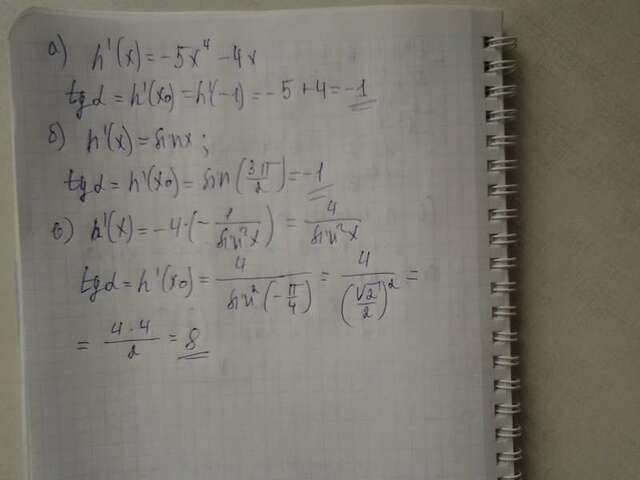 а) h'(x) = -5x⁴ - 4x
tg α = h'(x₀) = h'(-1) = -5 + 4 = -1
б) h'(x) = sin x;
tg α = h'(x₀) = sin(3π/2) = -1
в) h'(x) = -4·(-1/sin²x) = 4/sin²x
tg α = h'(x₀) = 4/sin²(-π/4) = 4/(√2/2)² =
= 4·4/2 = 8